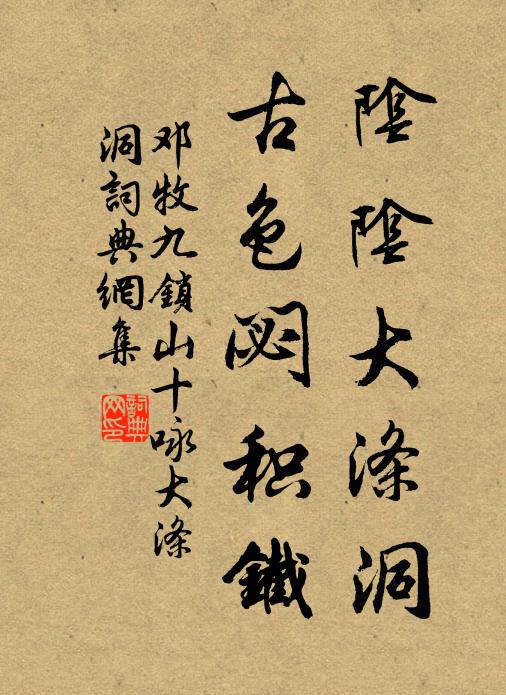 陰陰大滌洞
古色閟积鐵
邓牧九鎖山十咏大滌
洞詞典網集
詞典网印